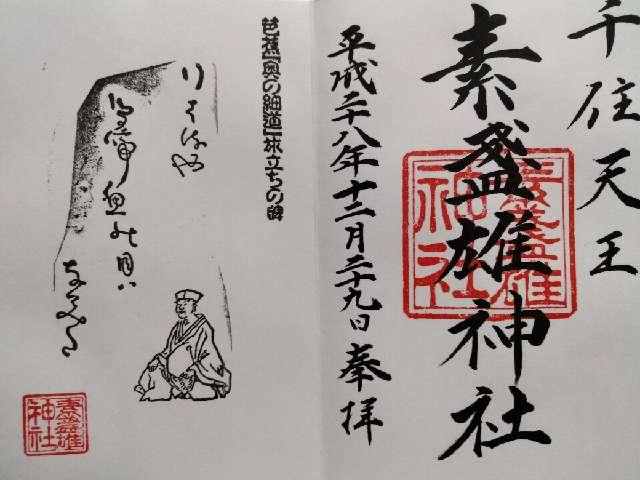 千住天王
素盞雄神社
素盞雄神社
平成二十八年十二月二十九日 奉拝
芭蕉「奥の細道」旅立ちの碑
行く春や
鳥啼魚の目は
なみだ
素盞雄神社